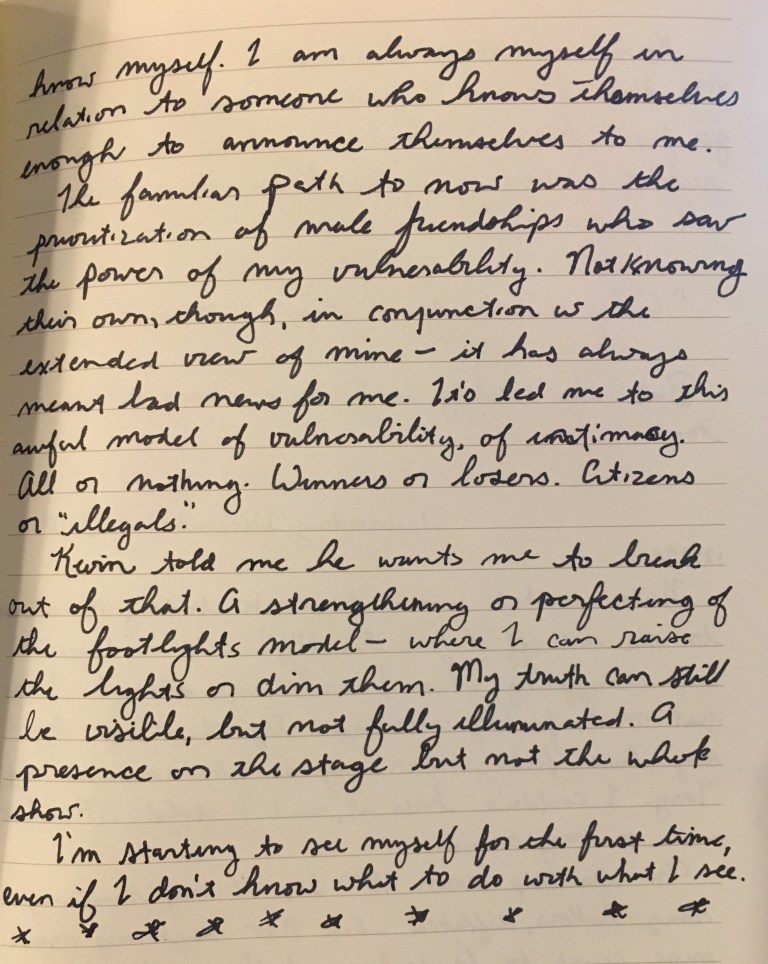 know myself. I am always myself in
relation to someone who knows themselves
enough to announce themselves to me.
The familiar path to now was the
prioritization of male friendships who saw
the power of my vulnerability. Not knowing
their own, though, in conjunction w the
extended view of mine – it has always
meant bad news for me. It's led me to this
awful model of vulnerability, of intimacy.
All or nothing. Winners or losers. Citizens
or "illegals."
Kevin told me he wants me to break
out of that. A strengthening or perfecting of
the footlights model – where I can raise
the lights or dim them. My truth can still
be visible, but not fully illuminated. A
presence on the stage but not the whole
show.
I'm starting to see myself for the first time,
even if I don't know what to do with what I see.
* * * * * * * * * *